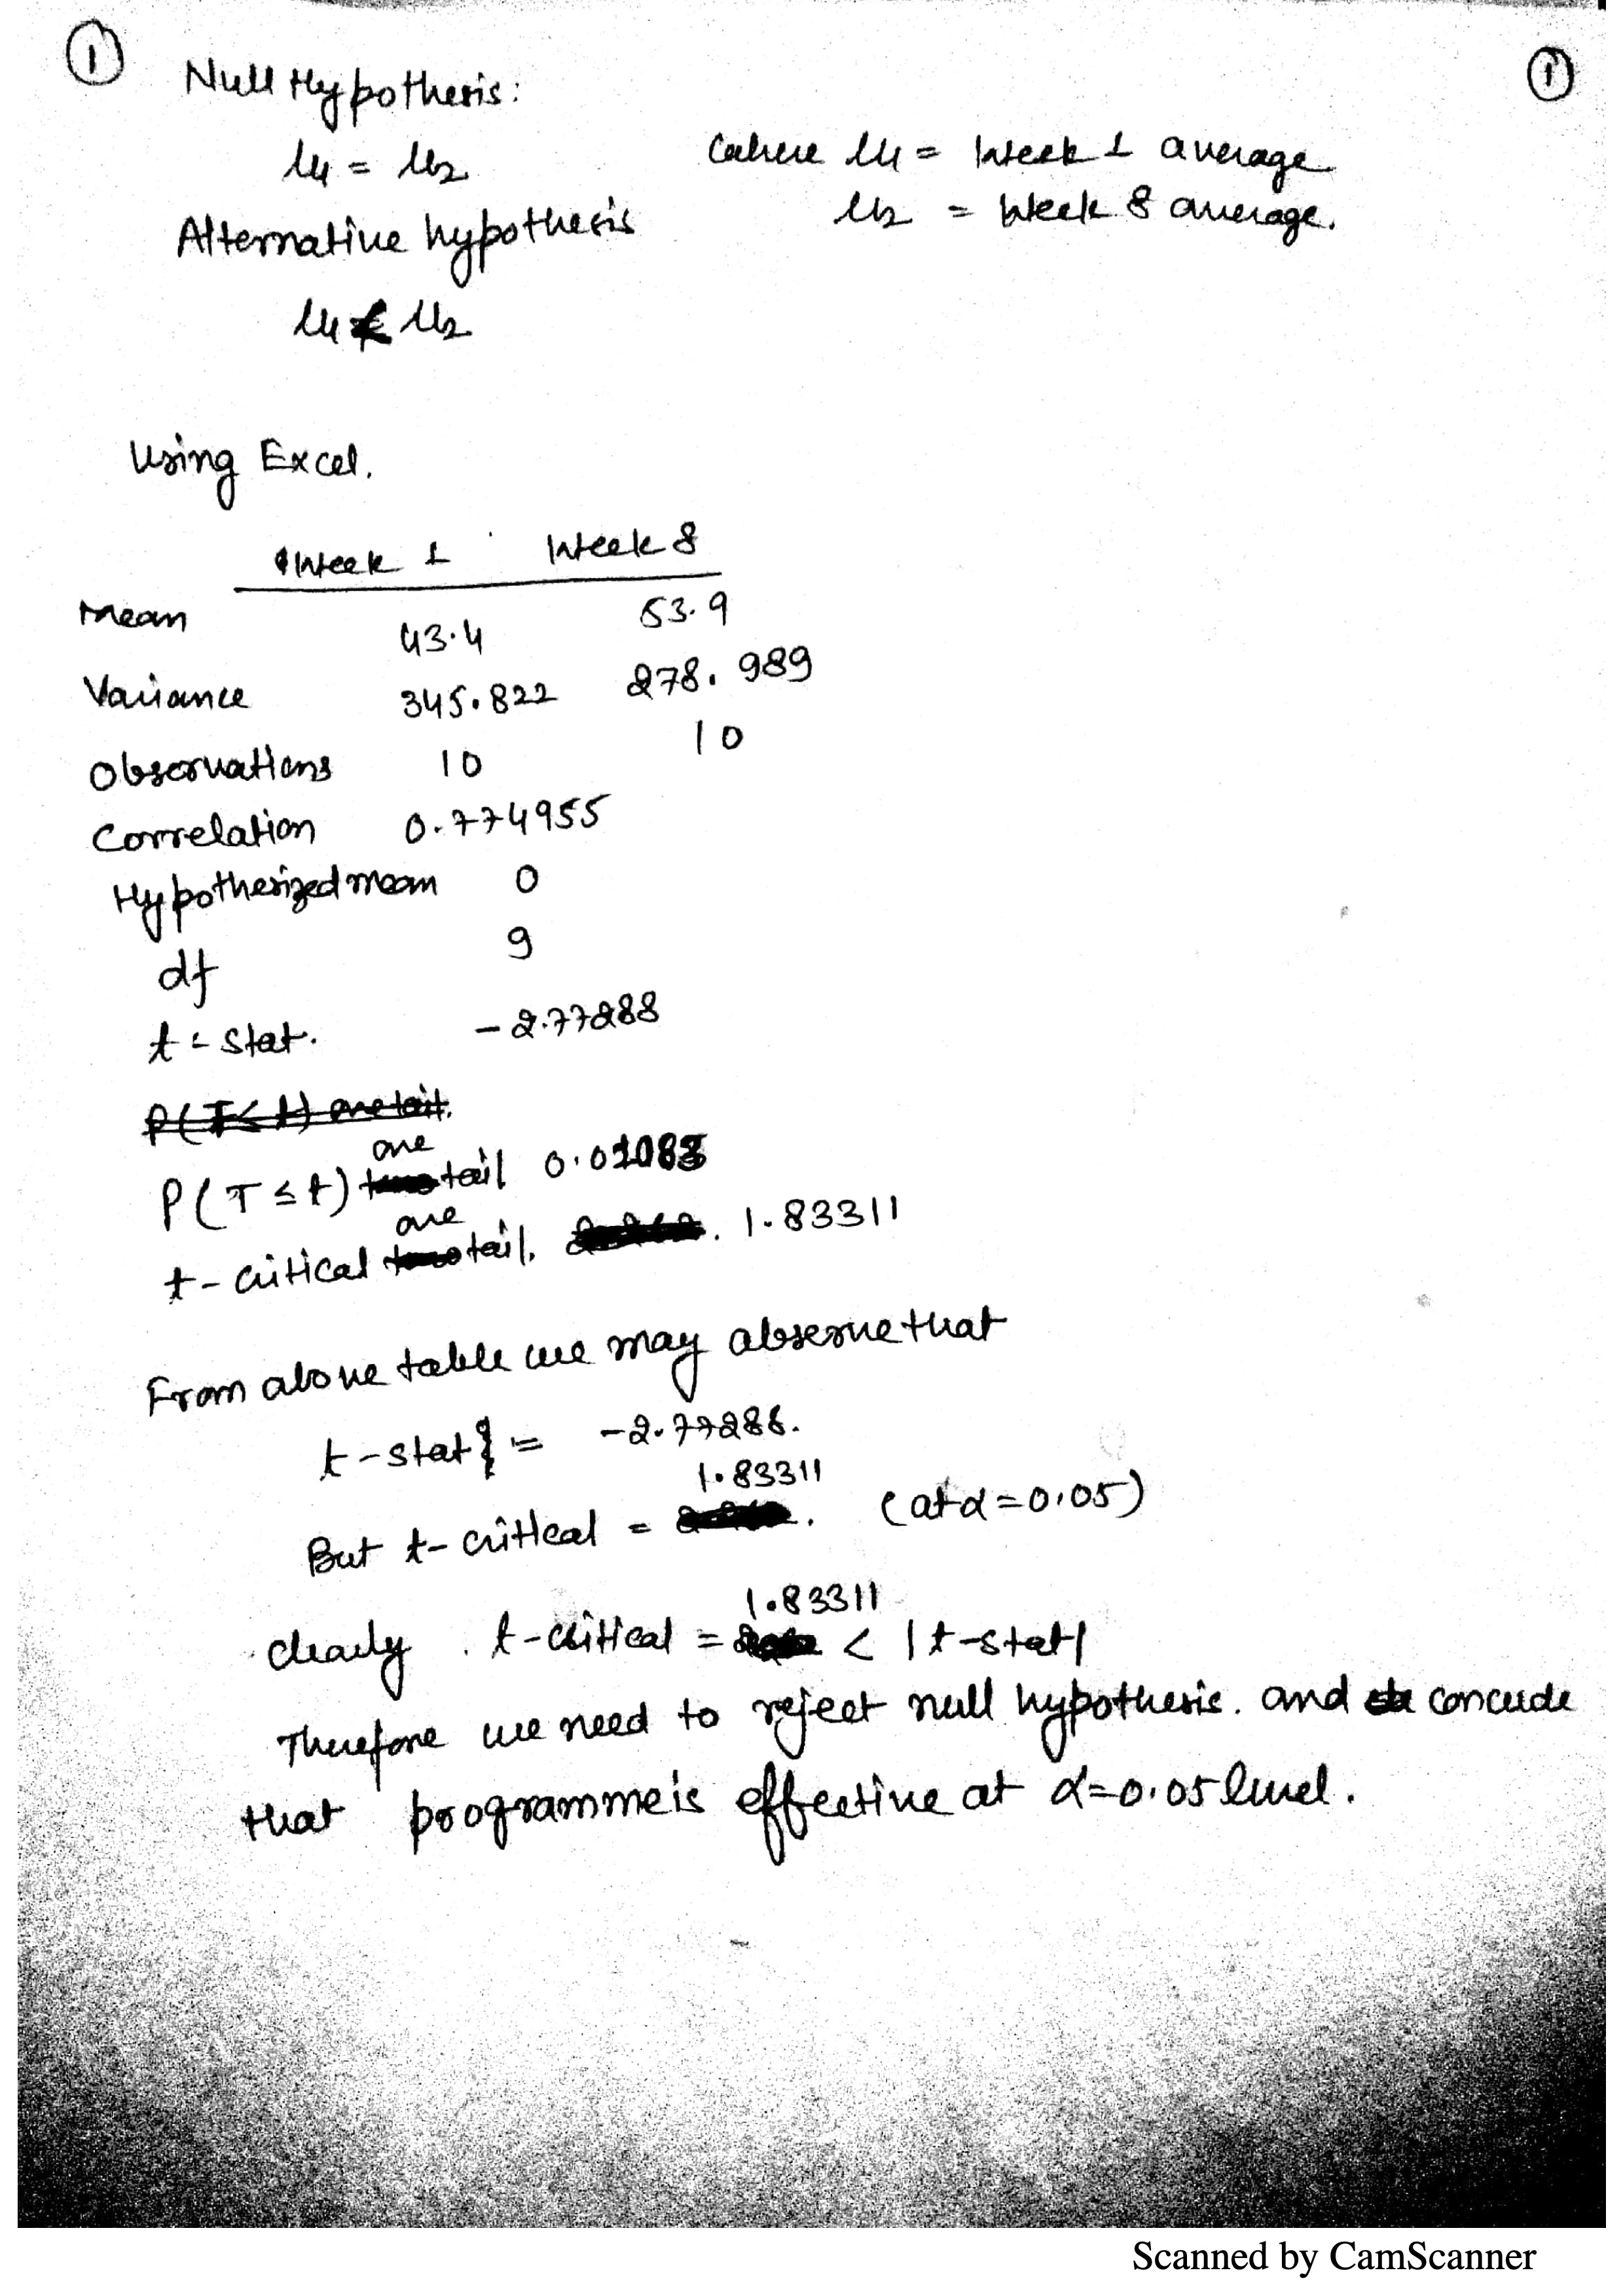 ① ①
Null Hypothesis:
μ1 = μ2 where μ1 = Week 1 average
Alternative hypothesis μ2 = Week 8 average.
μ1 < μ2
Using Excel.
Week 1 Week 8
Mean 43.4 53.9
Variance 345.822 278.989
Observations 10 10
Correlation 0.774955
Hypothesized mean 0
df 9
t - stat. -2.77288
P(T≤t) one tail.
P(T≤t) one tail 0.01083
t-critical one tail. 1.83311
From above table we may observe that
t-stat} = -2.77288.
But t-critical = 1.83311. (at α=0.05)
clearly. t-critical = 1.83311 < |t-stat|
Therefore we need to reject null hypothesis. and concude
that programme is effective at α=0.05 level.
Scanned by CamScanner